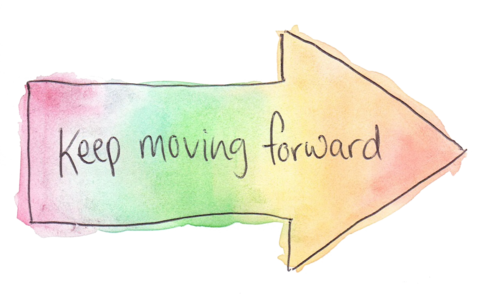 Keep moving forward